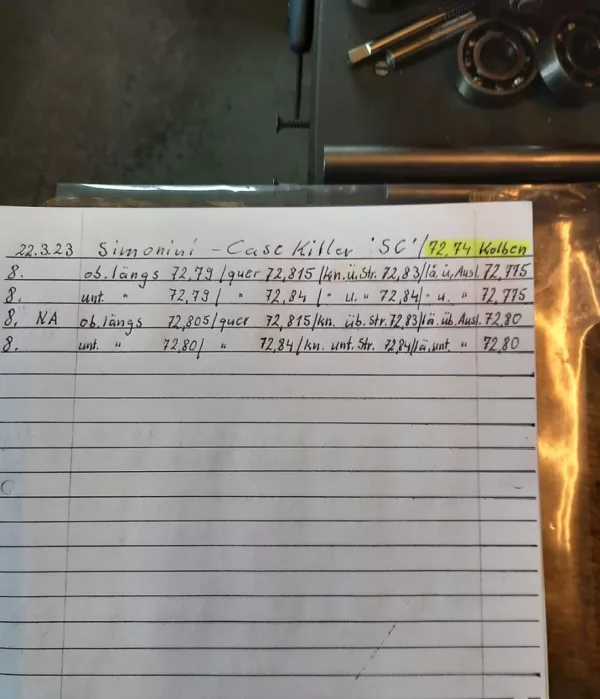 22.3.23 Simonini - Case Killer 'SC' / 72,74 Kolben
8. ob. längs 72,79 / quer 72,815 / kn. ü. Str. 72,83 / lä. ü. Ausl. 72,775
8. unt. " 72,79 / " 72,84 / " u. " 72,84 / " u. " 72,775
8. NA ob. längs 72,805 / quer 72,815 / kn. üb. Str. 72,83 / lä. üb. Ausl. 72,80
8. unt. " 72,80 / " 72,84 / kn. unt. Str. 72,84 / lä. unt. " 72,80